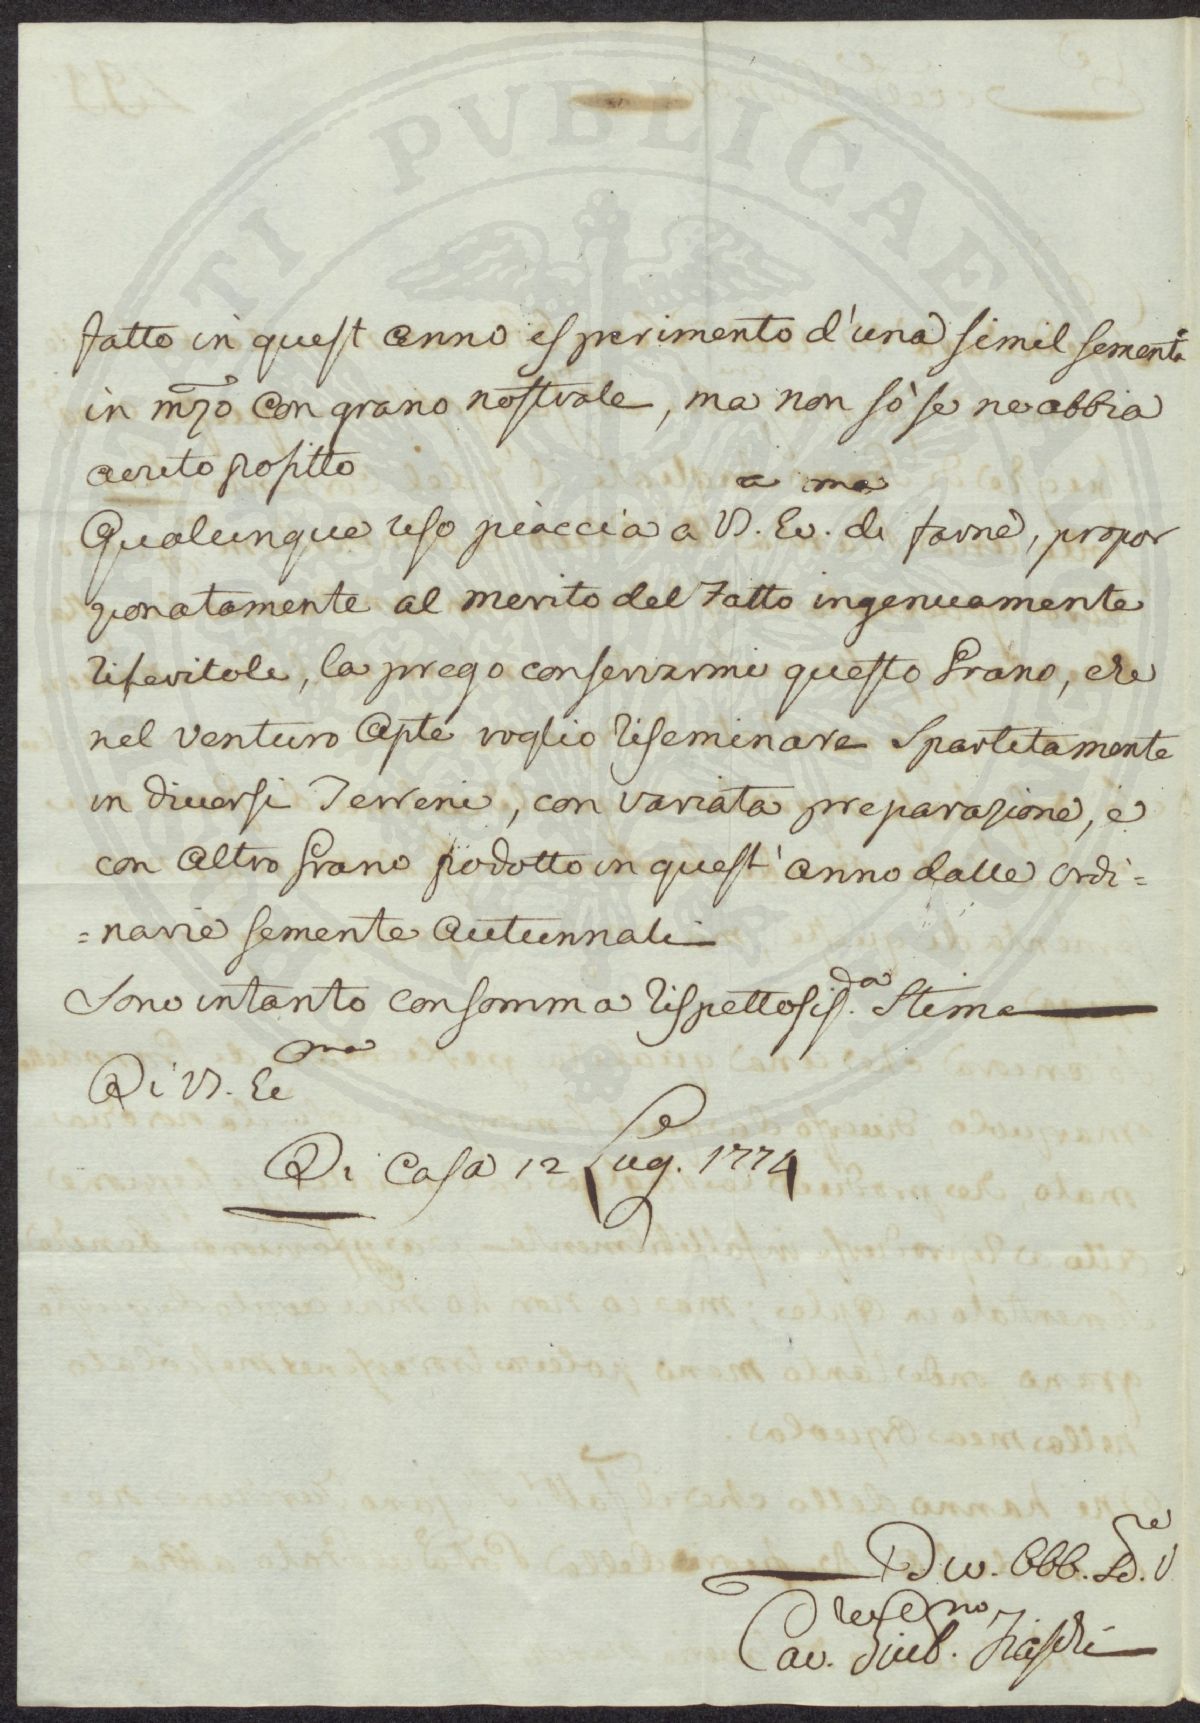 fatto in quest anno esperimento d'una simil sementa
in mzo con grano nostrale, ma non sò se ne abbia
avuto profitto
Qualunque uso piaccia a V. Ecc.a ma di farne, propor
zionatamente al merito del Fatto ingenuamente
riferitole, la prego conservarmi questo Grano, che
nel venturo Apte voglio riseminare Spartitamente
in diversi Terreni, con variata preparazione, e
con altro Grano prodotto in quest' anno dalle ordi=
=narie semente autunnali
Sono intanto con somma rispettosis.da Stima
Di V. Ec ma
Di Casa 12 Lug. 1774
Dev. Obb. S.re V
Cav.re Giu.